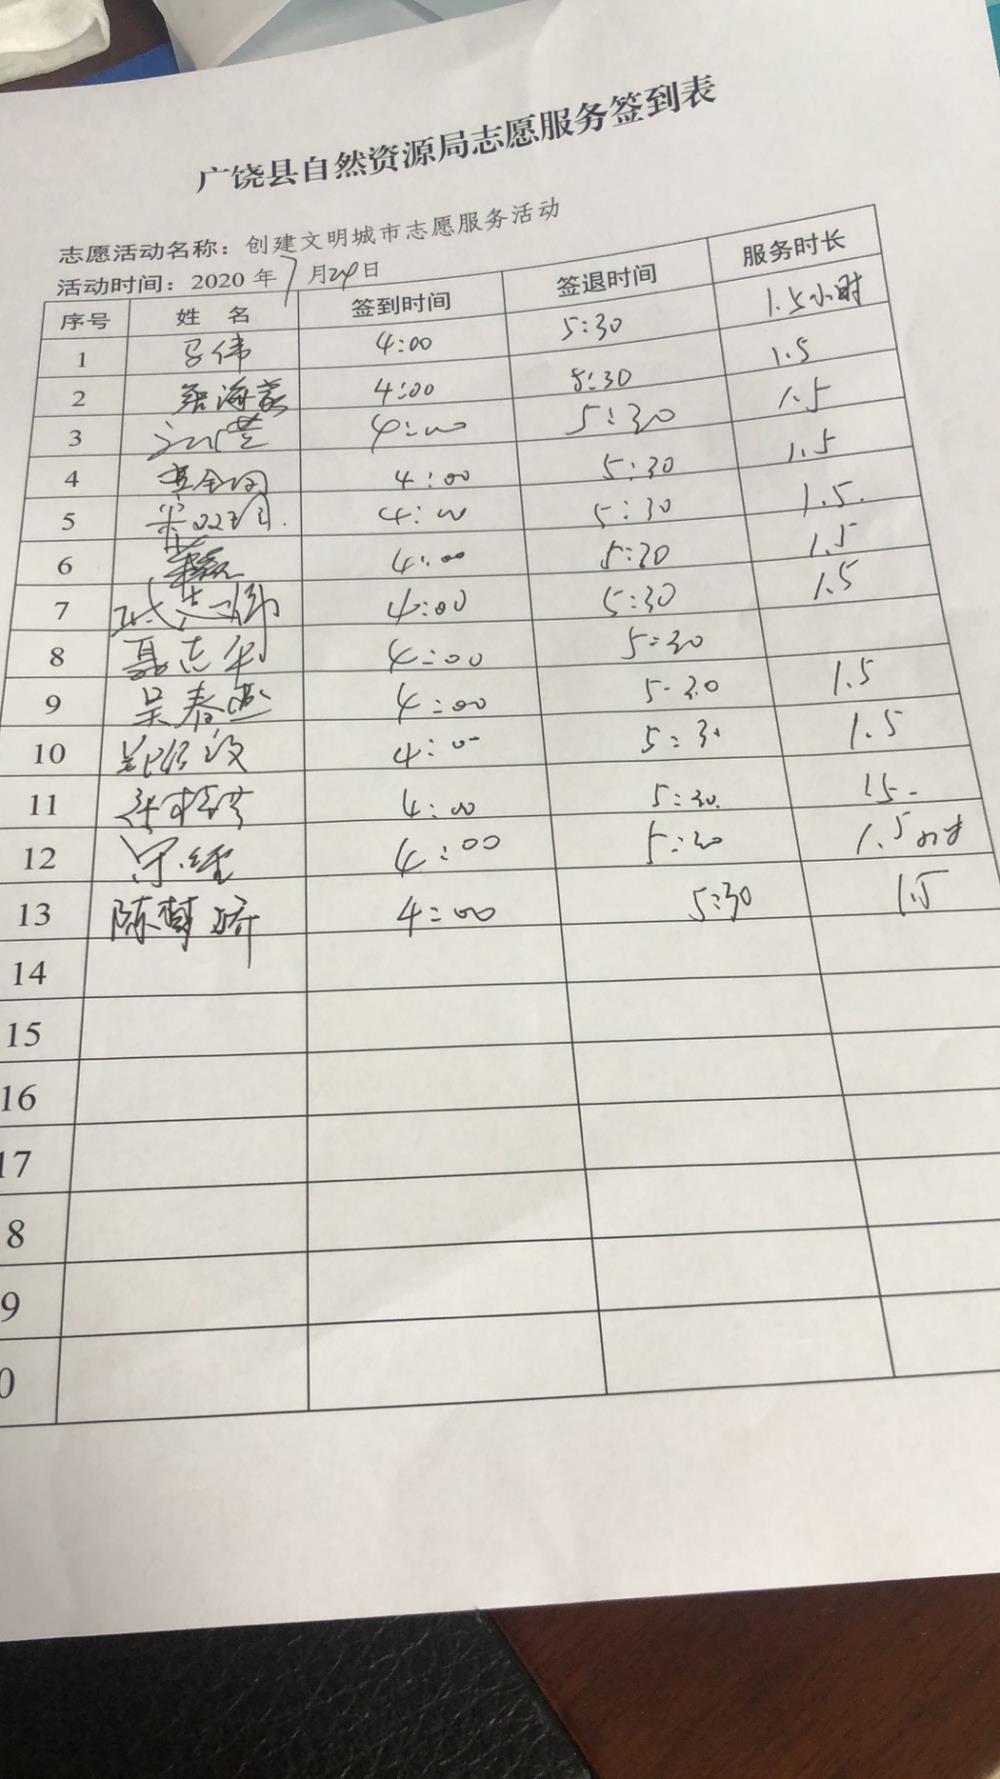 广饶县自然资源局志愿服务签到表
志愿活动名称：创建文明城市志愿服务活动
活动时间：2020年7月24日
序号 姓名 签到时间 签退时间 服务时长
1 马伟 4:00 5:30 1.5小时
2 4:00 5:30 1.5
3 4:00 5:30 1.5
4 4:00 5:30 1.5
5 4:00 5:30 1.5.
6 4:00 5:30 1.5
7 4:00 5:30 1.5
8 聂志华 4:00 5:30
9 吴春燕 4:00 5:30 1.5
10 4:00 5:30 1.5
11 4:00 5:30. 15.
12 4:00 5:30 1.5小时
13 陈梦娇 4:00 5:30 1.5
14
15
16
17
8
9
0